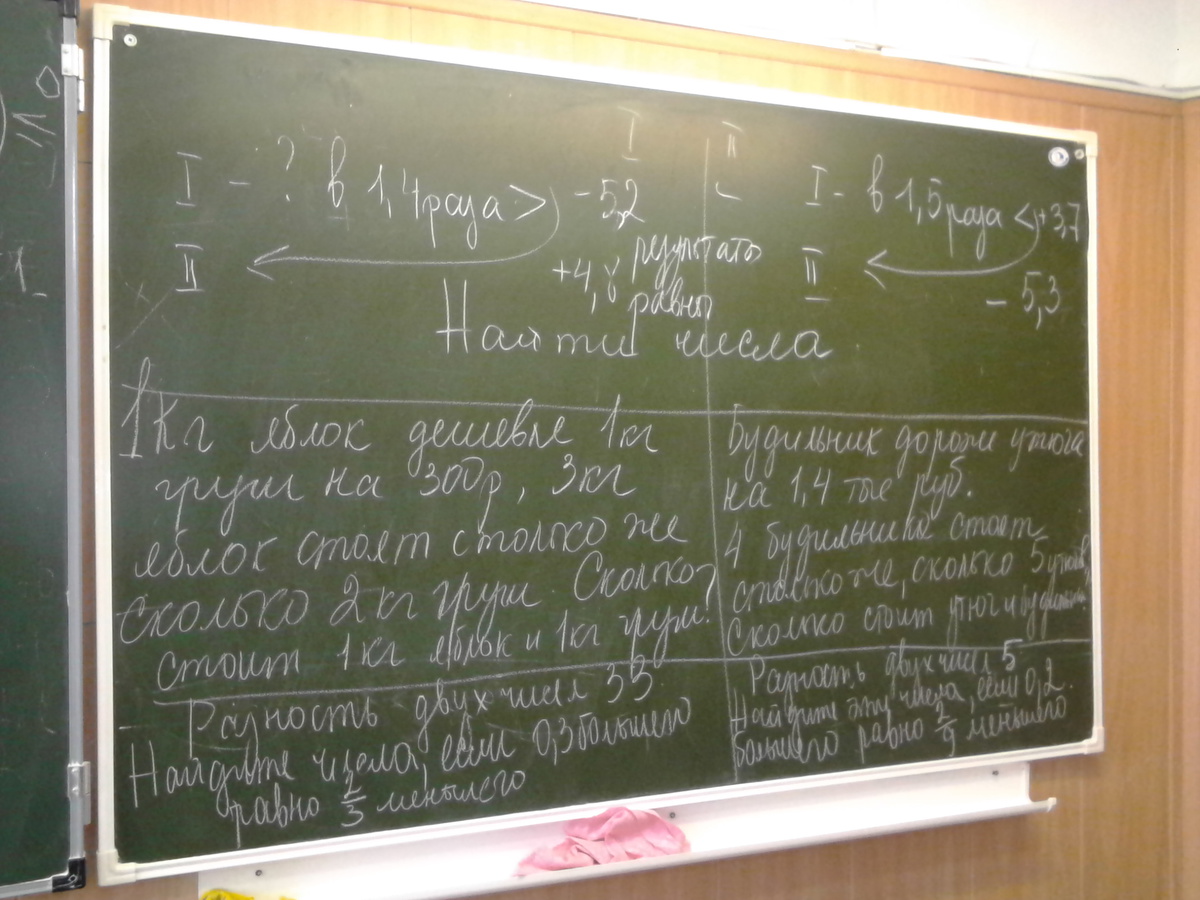 I II
I - ? в 1,4 раза > - 5,2
II +4,8 результаты
равны
I - в 1,5 раза < +3,7
II - 5,3
Найти числа
1 кг яблок дешевле 1 кг
груш на 300р, 3 кг
яблок стоят столько же
сколько 2 кг груш. Сколько
стоит 1 кг яблок и 1 кг груш?
Будильник дороже утюга
на 1,4 тыс руб.
4 будильника стоят
столько же, сколько 5 утюгов,
Сколько стоит утюг и будильник?
Разность двух чисел 33.
Найдите числа, если 0,3 большего
равно 2/3 меньшего
Разность двух чисел 5
Найдите эти числа, если 0,2
большего равно 2/9 меньшего